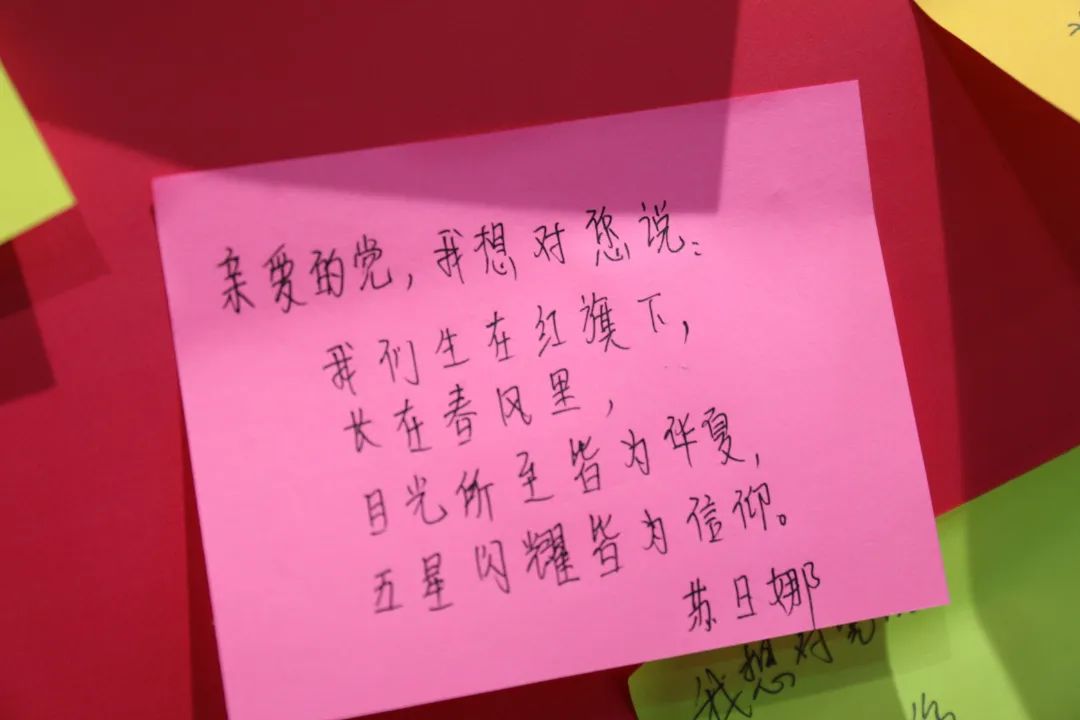 亲爱的党，我想对您说：
我们生在红旗下，
长在春风里，
目光所至皆为华夏，
五星闪耀皆为信仰。
苏日娜
我想对党